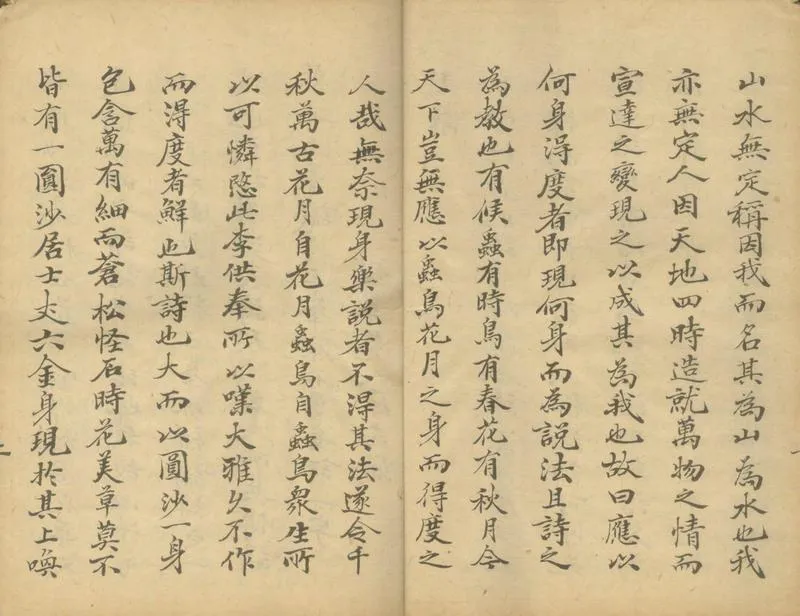 山水無定稱因我而名其為山為水也我
亦無定人因天地四時造就萬物之情而
宣達之變現之以成其為我也故曰應以
何身得度者即現何身而為說法且詩之
為教也有候蟲有時鳥有春花有秋月今
天下豈無應以蟲鳥花月之身而得度之
人哉無奈現身樂說者不得其法遂令千
秋萬古花月自花月蟲鳥自蟲鳥眾生所
以可憐愍此李供奉所以嘆大雅久不作
而得度者鮮也斯詩也大而以圓沙一身
包含萬有細而蒼松怪石時花美草莫不
皆有一圓沙居士丈六金身現於其上喚